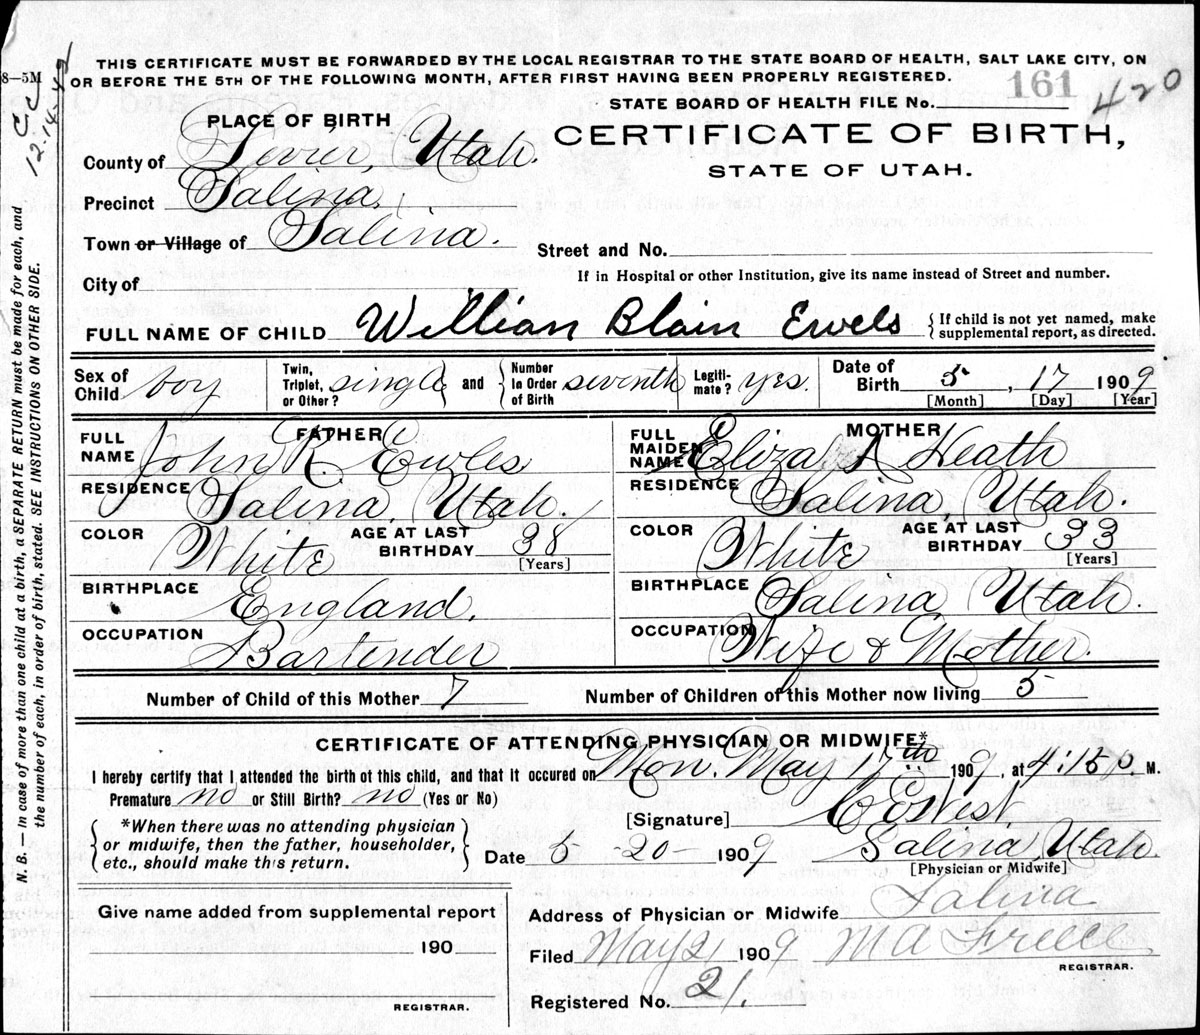 THIS CERTIFICATE MUST BE FORWARDED BY THE LOCAL REGISTRAR TO THE STATE BOARD OF HEALTH, SALT LAKE CITY, ON
8—5M OR BEFORE THE 5TH OF THE FOLLOWING MONTH, AFTER FIRST HAVING BEEN PROPERLY REGISTERED.
12-14-42
STATE BOARD OF HEALTH FILE No. 161 420
PLACE OF BIRTH
CERTIFICATE OF BIRTH,
STATE OF UTAH.
County of Sevier, Utah.
Precinct Salina.
Town or Village of Salina.
Street and No.
City of
If in Hospital or other Institution, give its name instead of Street and number.
FULL NAME OF CHILD Willian Blain Ewels { If child is not yet named, make supplemental report, as directed.
Sex of Child boy Twin, Triplet, or Other? single and Number In Order of Birth seventh Legiti-mate? yes. Date of Birth 5, 17 1909
[Month] [Day] [Year]
FATHER
FULL NAME John R. Ewles
RESIDENCE Salina, Utah.
COLOR White AGE AT LAST BIRTHDAY 38 [Years]
BIRTHPLACE England.
OCCUPATION Bartender
MOTHER
FULL MAIDEN NAME Eliza A Heath
RESIDENCE Salina, Utah.
COLOR White AGE AT LAST BIRTHDAY 33 [Years]
BIRTHPLACE Salina Utah.
OCCUPATION Wife & Mother.
Number of Child of this Mother 7 Number of Children of this Mother now living 5
CERTIFICATE OF ATTENDING PHYSICIAN OR MIDWIFE*
I hereby certify that I attended the birth of this child, and that it occured on Mon. May 17th 1909, at 4:15 p. M.
Premature no or Still Birth? no (Yes or No)
[Signature] West.
{ *When there was no attending physician
or midwife, then the father, householder,
etc., should make this return. }
Date 5-20- 1909
Salina, Utah.
[Physician or Midwife]
Give name added from supplemental report
190
REGISTRAR.
Address of Physician or Midwife Salina
Filed May 21 1909 M A
REGISTRAR.
Registered No. 21.
N. B. — In case of more than one child at a birth, a SEPARATE RETURN must be made for each, and
the number of each, in order of birth, stated. SEE INSTRUCTIONS ON OTHER SIDE.